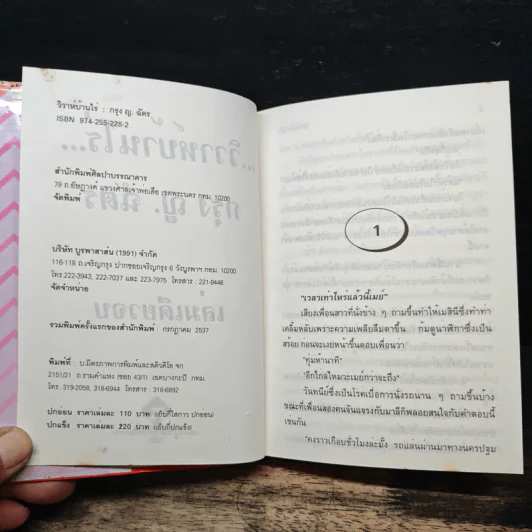 วิวาห์บ้านไร่ : กรุง ญ. ฉัตร
ISBN 974-255-228-2
สำนักพิมพ์ศิลปาบรรณาคาร
79 ถ.อัษฎางค์ แขวงศาลเจ้าพ่อเสือ เขตพระนคร กทม. 10200
จัดพิมพ์
บริษัท บูรพาสาส์น (1991) จำกัด
116-118 ถ.เจริญกรุง ปากซอยเจริญกรุง 6 วังบูรพาฯ กทม. 10200
โทร.222-3943, 222-7037 และ 223-7975 โทรสาร : 221-9446
จัดจำหน่าย
รวมพิมพ์ครั้งแรกของสำนักพิมพ์ กรกฎาคม 2537
พิมพ์ที่ : บ.มิตรภาพการพิมพ์และสติวดิโอ จก
2151/21 ถ.รามคำแหง (ซอย 43/1) เขตบางกะปิ กทม.
โทร. 319-2058, 318-6944 โทรสาร 318-3892
ปกอ่อน ราคาเล่มละ 110 บาท (เย็บกี่ไสกาว ปกอ่อน)
ปกแข็ง ราคาเล่มละ 220 บาท (เย็บกี่ปกแข็ง)
1
"เวลาเท่าไหร่แล้วนี้เมย์"
เสียงเพื่อนสาวที่นั่งข้าง ๆ ถามขึ้นทำให้เมธินีซึ่งทำท่า
เคลิ้มหลับเพราะความเพลียลืมตาขึ้น ก้มดูนาฬิกาซึ่งเป็น
สร้อย ก่อนจะเงยหน้าขึ้นตอบเพื่อนว่า
"ทุ่มห้านาที"
"อีกไกลไหมวะเมย์กว่าจะถึง"
วันทนีย์ซึ่งเป็นโรคเบื่อการนั่งรถนาน ๆ ถามขึ้นบ้าง
ขณะที่เพื่อนสองคนจันแจรงกับมาลีก็พลอยสนใจกับคำตอบนี้
เช่นกัน
"คงราวเกือบชั่วโมงละมั้ง รถแล่นผ่านมาทางนครปฐม